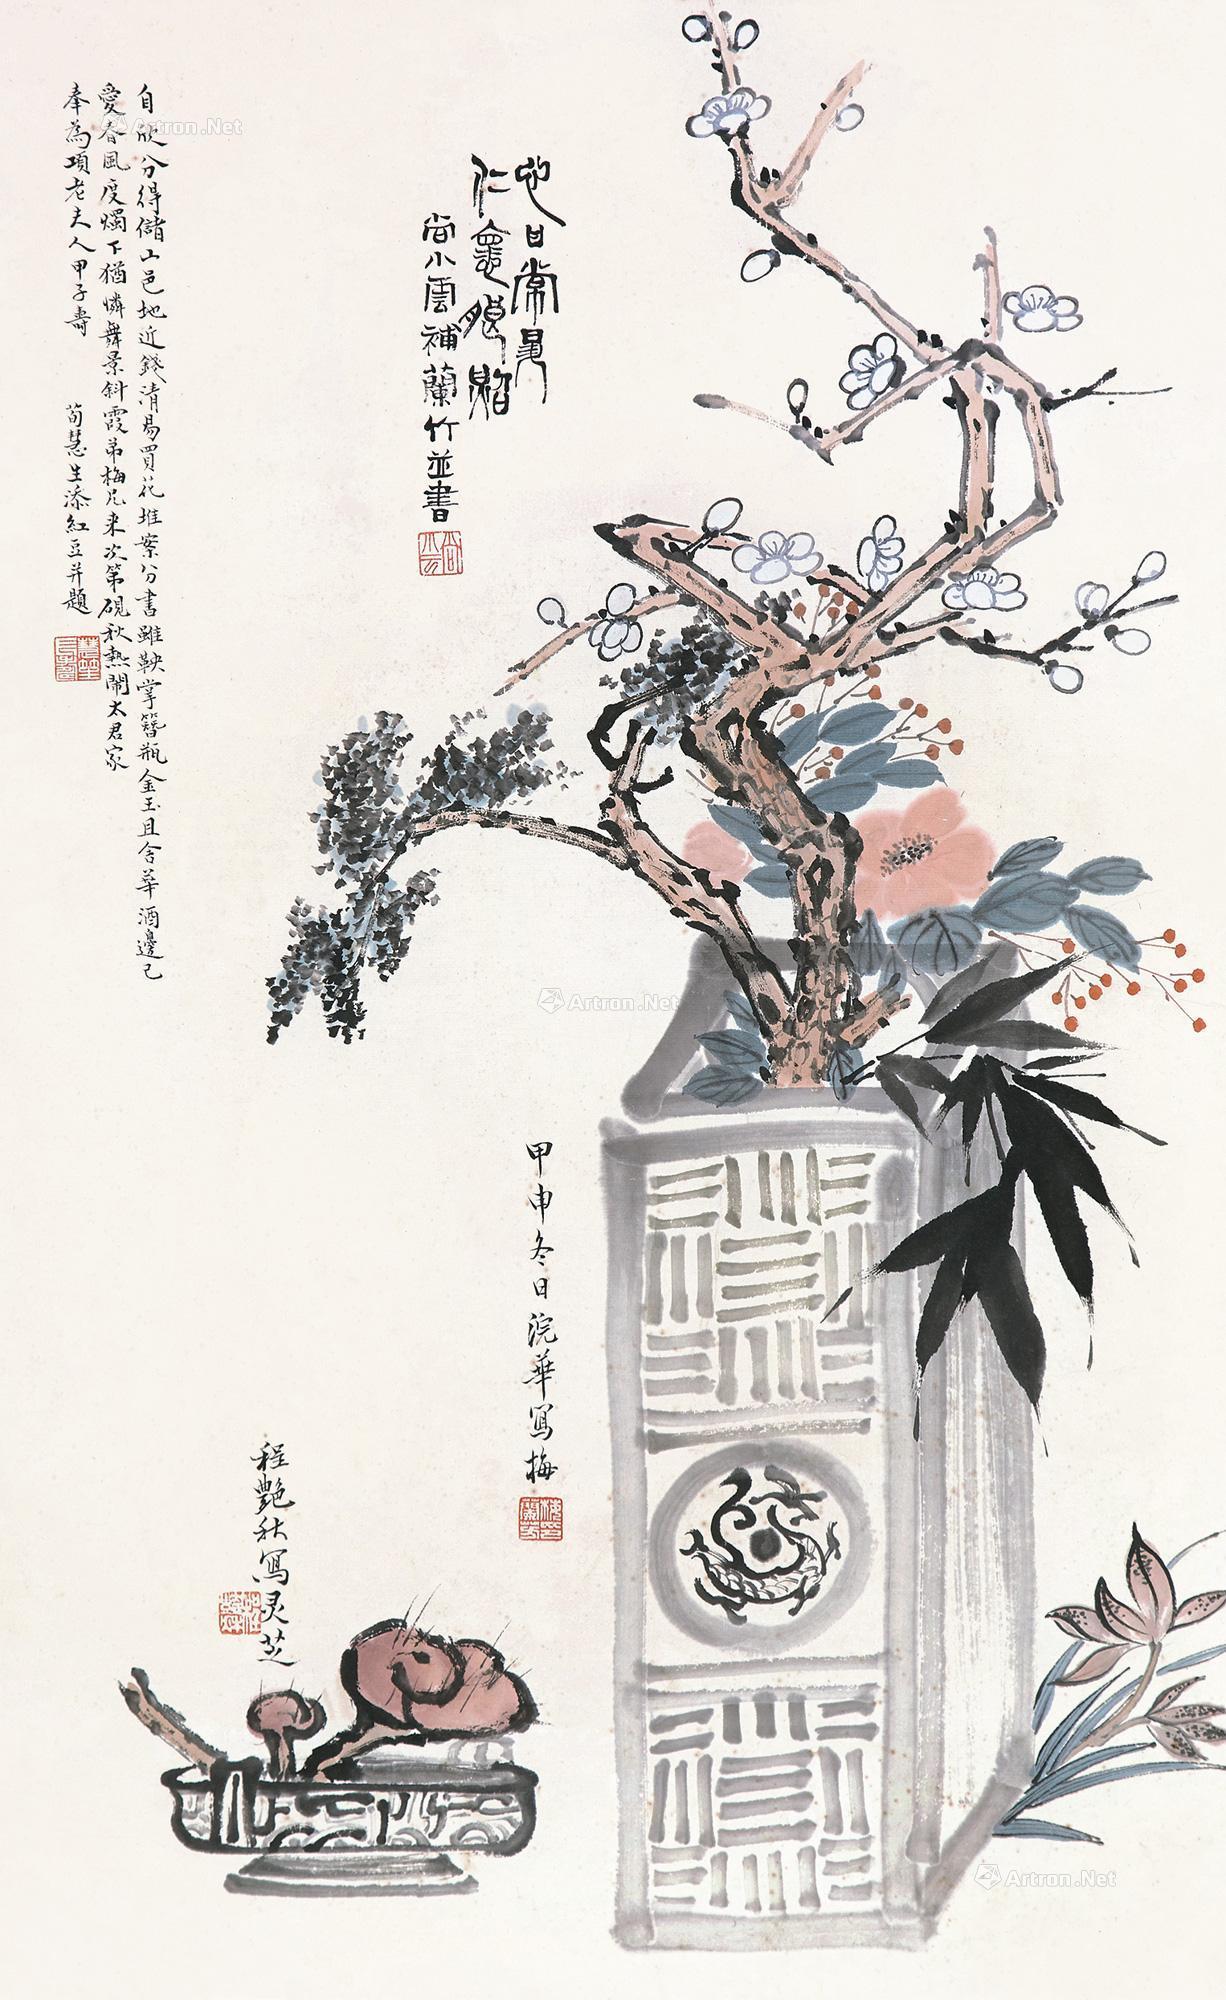 自欣分得儲山邑地近錢清易買花堆案分書雖鞅掌簪瓶金玉且含華酒邊已
愛春風度燭下猶憐舞景斜霞弟梅兄来次第硯秋熱鬧太君家
奉為項老夫人甲子壽 荀慧生添紅豆并題
尚小雲補蘭竹並書
甲申冬日浣華寫梅
程艷秋寫灵芝
Artron.Net
Artron.Net
Artron.Net